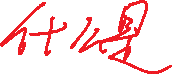 什么是